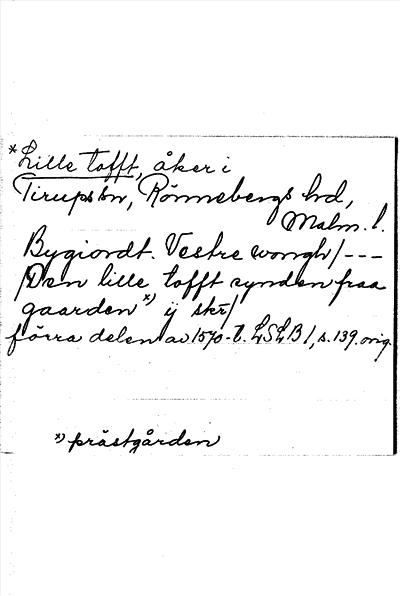 *Lille tofft, åker i
Tirups sn, Rönnebergs hd,
Malm. l.
Bygiordt. Vestre wongh/---
/Den lille tofft synden fraa
gaarden*) ij skr/
förra delen av 1570-t. LSLB 1, s. 139. orig.
*) prästgården